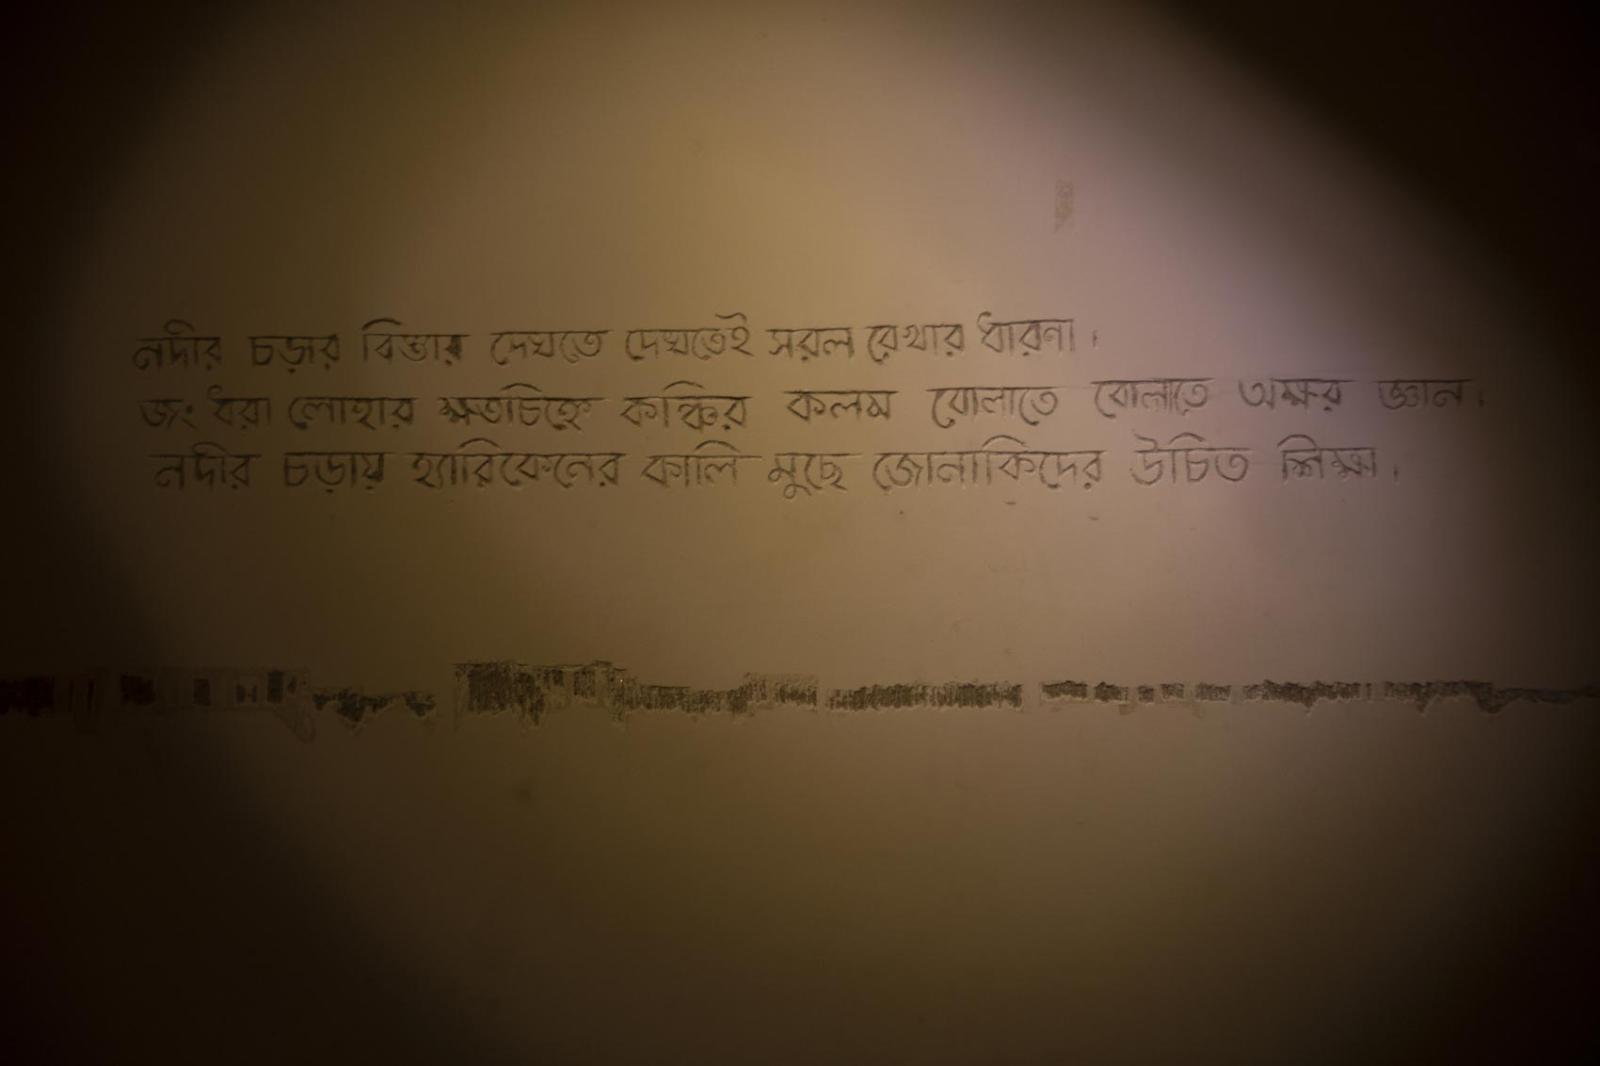 নদীর চড়ার বিস্তার দেখতে দেখতেই সরল রেখার ধারনা।
জং ধরা লোহার ক্ষতচিহ্নে কঞ্চির কলম বোলাতে বোলাতে অক্ষর জ্ঞান।
নদীর চড়ায় হ্যারিকেনের কালি মুছে জোনাকিদের উচিত শিক্ষা।